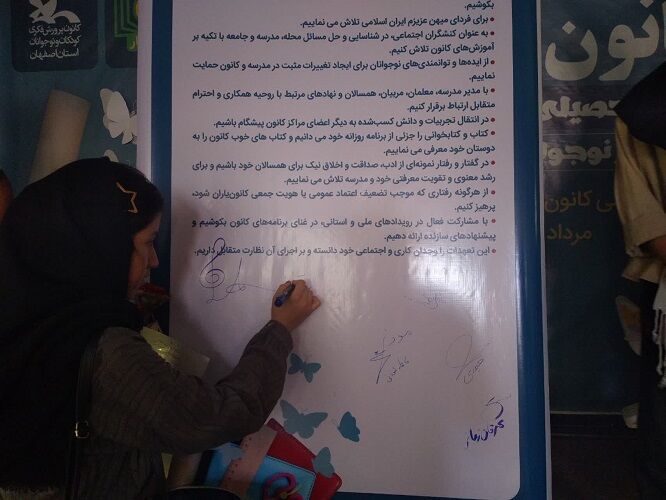 بکوشیم.
• برای فردای میهن عزیزم ایران اسلامی تلاش می نماییم.
• به عنوان کنشگران اجتماعی، در شناسایی و حل مسائل محله، مدرسه و جامعه با تکیه بر
آموزش‌های کانون تلاش کنیم.
• از ایده‌ها و توانمندی‌های نوجوانان برای ایجاد تغییرات مثبت در مدرسه و کانون حمایت
نماییم.
• با مدیر مدرسه، معلمان، مربیان، همسالان و نهادهای مرتبط با روحیه همکاری و احترام
متقابل ارتباط برقرار کنیم.
• در انتقال تجربیات و دانش کسب‌شده به دیگر اعضای مراکز کانون پیشگام باشیم.
• کتاب و کتابخوانی را جزئی از برنامه روزانه خود می دانیم و کتاب های خوب کانون را به
دوستان خود معرفی می نماییم.
• در گفتار و رفتار نمونه‌ای از ادب، صداقت و اخلاق نیک برای همسالان خود باشیم و برای
رشد معنوی و تقویت معرفتی خود و مدرسه تلاش می نماییم.
• از هرگونه رفتاری که موجب تضعیف اعتماد عمومی یا هویت جمعی کانون‌یاران شود،
پرهیز کنیم.
• با مشارکت فعال در رویدادهای ملی و استانی، در غنای برنامه‌های کانون بکوشیم و
پیشنهادهای سازنده ارائه دهیم.
• این تعهدات را وجدان کاری و اجتماعی خود دانسته و بر اجرای آن نظارت متقابل داریم.
کانون پرورش فکری
کودکان و نوجوانان
استان اصفهان
انون
حصیلی
نوجو
ی کانون
مرداد